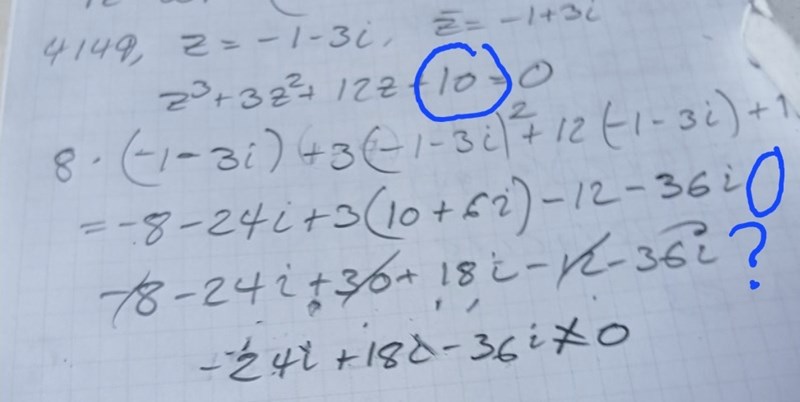 4149, z = -1-3i, z̄ = -1+3i
z³+3z²+ 12z+10=0
8·(-1-3i)+3(-1-3i)²+12(-1-3i)+1
=-8-24i+3(10+6i)-12-36i 0
-8-24i+30+18i-12-36i ?
-24i+18i-36i≠0